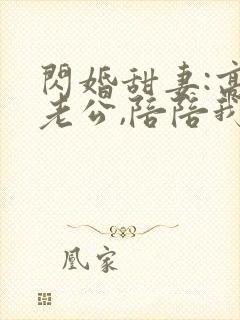 閃婚甜妻:高
老公,陪陪我
凰家